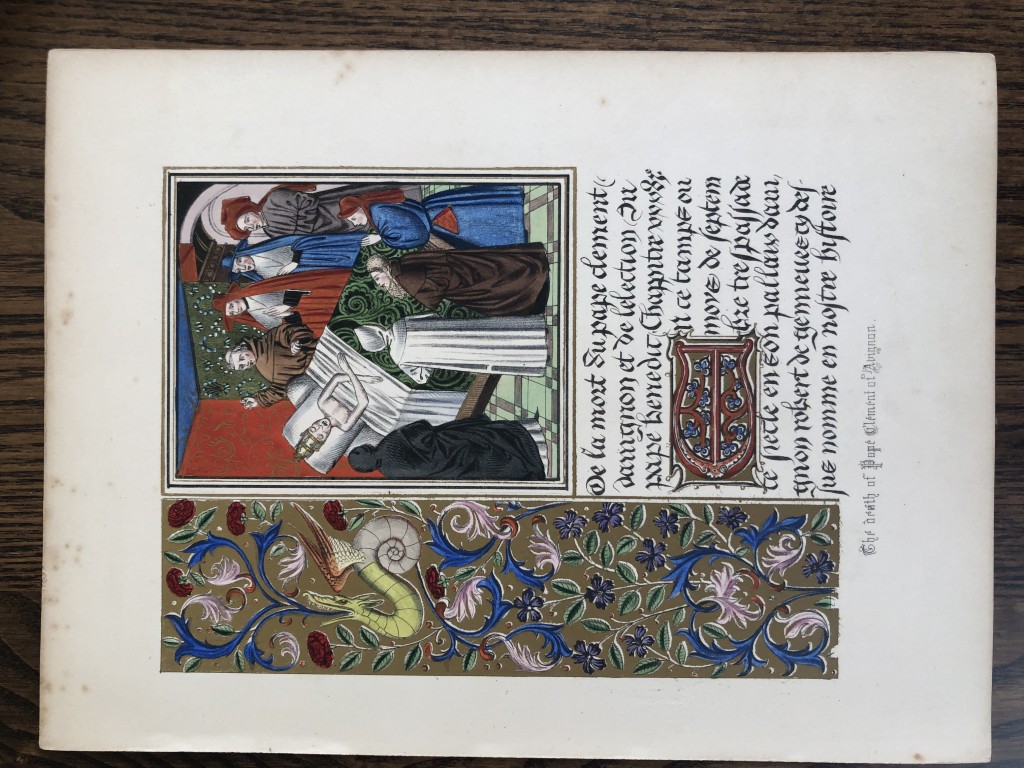 De la mort du pape clement
dauignon et de lelection du
pape benedit Chappitre
En ce tamps ou
moys de septem
bre trespassa de
ce siecle en son pallais dauui
gnon robert de genneue cy des
sus nomme en nostre histoire
The death of Pope Clement of Avignon.